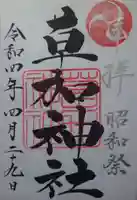 奉拝 昭和祭
草加神社
令和四年四月二十九日